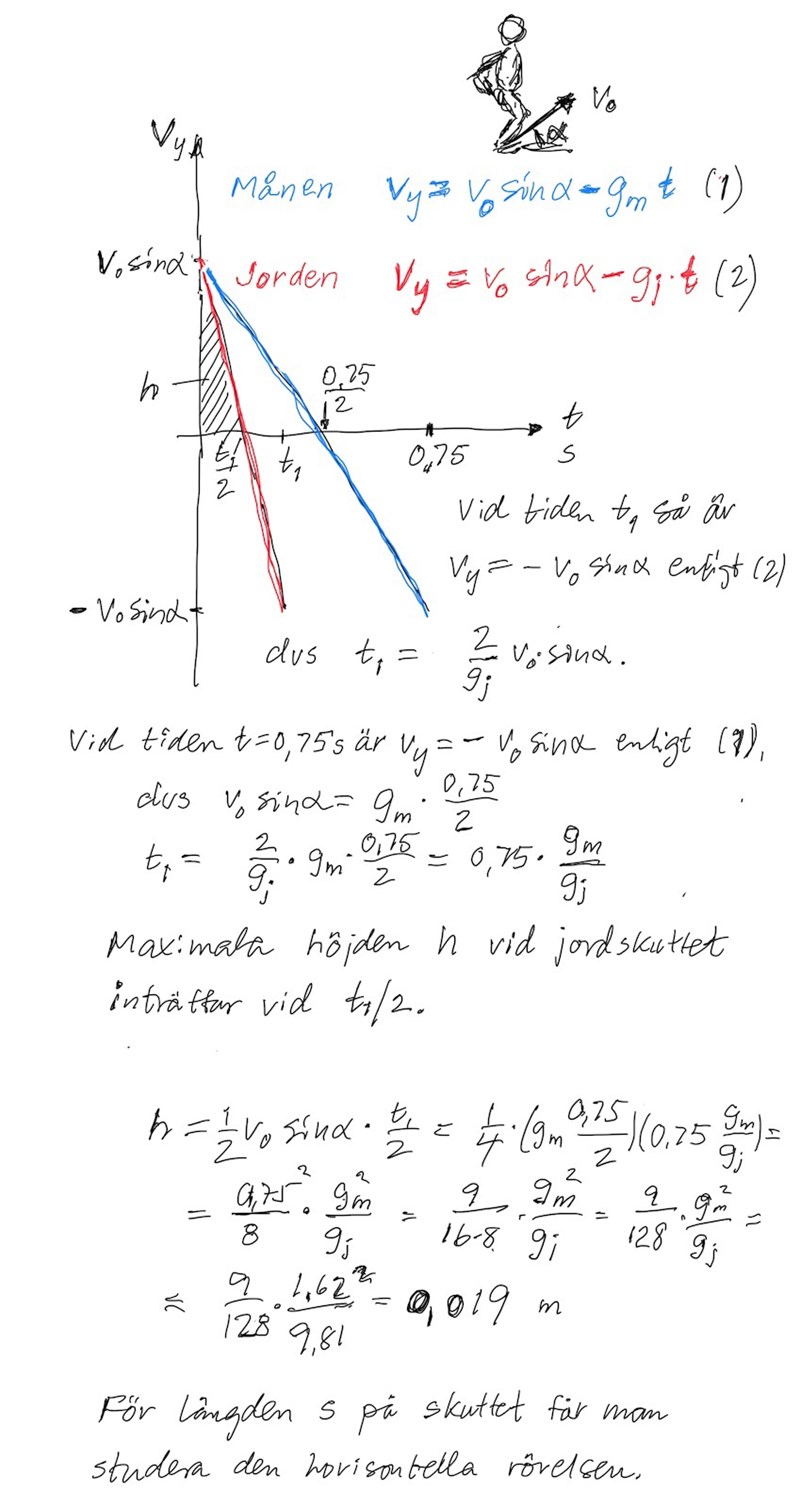 V₀
α
Vy
Månen Vy = V₀ sinα - gₘ t (1)
V₀ sinα
Jorden Vy = V₀ sinα - gⱼ · t (2)
h
0,75/2
t
s
t₁/2
t₁
0,75
Vid tiden t₁ så är
Vy = - V₀ sinα enligt (2)
- V₀ sinα
dvs t₁ = 2/gⱼ V₀ · sinα.
Vid tiden t=0,75s är Vy = - V₀ sinα enligt (1),
dvs V₀ sinα = gₘ · 0,75/2
t₁ = 2/gⱼ · gₘ · 0,75/2 = 0,75 · gₘ/gⱼ
Maximala höjden h vid jordskuttet
inträffar vid t₁/2.
h = 1/2 V₀ sinα · t₁/2 = 1/4 · (gₘ 0,75/2)(0,75 gₘ/gⱼ) =
= 0,75²/8 · gₘ²/gⱼ = 9/16·8 · gₘ²/gⱼ = 9/128 · gₘ²/gⱼ =
= 9/128 · 1,62²/9,81 = 0,019 m
För längden s på skuttet får man
studera den horisontella rörelsen.